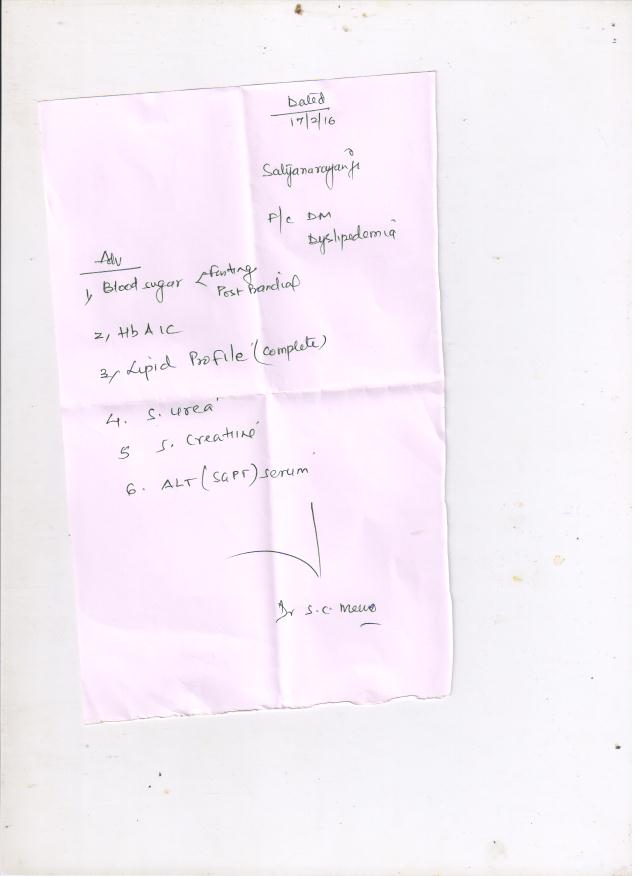 Dated
17/2/16
Satyanarayanji
F/c DM
Dyslipedemia
Adv
1, Blood sugar < Fasting
Post Prandial
2, HbA1C
3, Lipid Profile (complete)
4. S. urea
5 S. Creatine
6. ALT (SGPT) serum
Dr S.C.